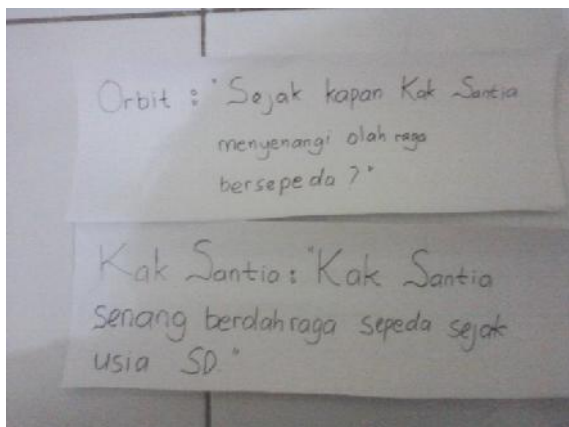 Orbit : "Sejak kapan Kak Santia
menyenangi olah raga
bersepeda ?"
Kak Santia : "Kak Santia
senang berolahraga sepeda sejak
usia SD."